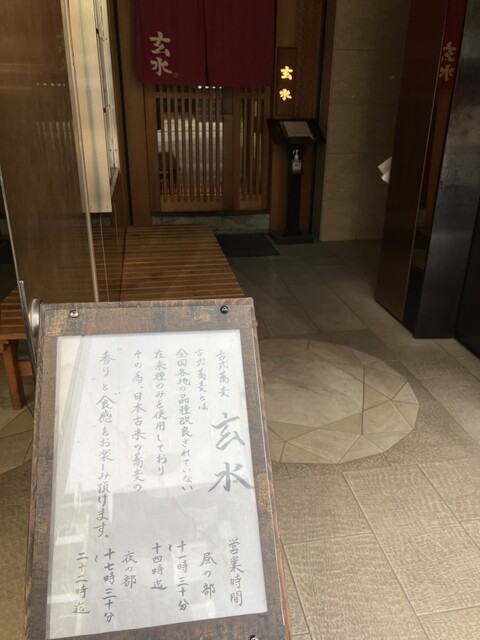 玄水
玄水
玄水
古式蕎麦
玄水
古式蕎麦とは
全国各地の品種改良されていない
在来種のみを使用しており
その為、日本古来の蕎麦の
香りと食感をお楽しみ頂けます。
営業時間
昼の部
十一時三十分
〜
十四時迄
夜の部
十七時三十分
〜
二十二時迄